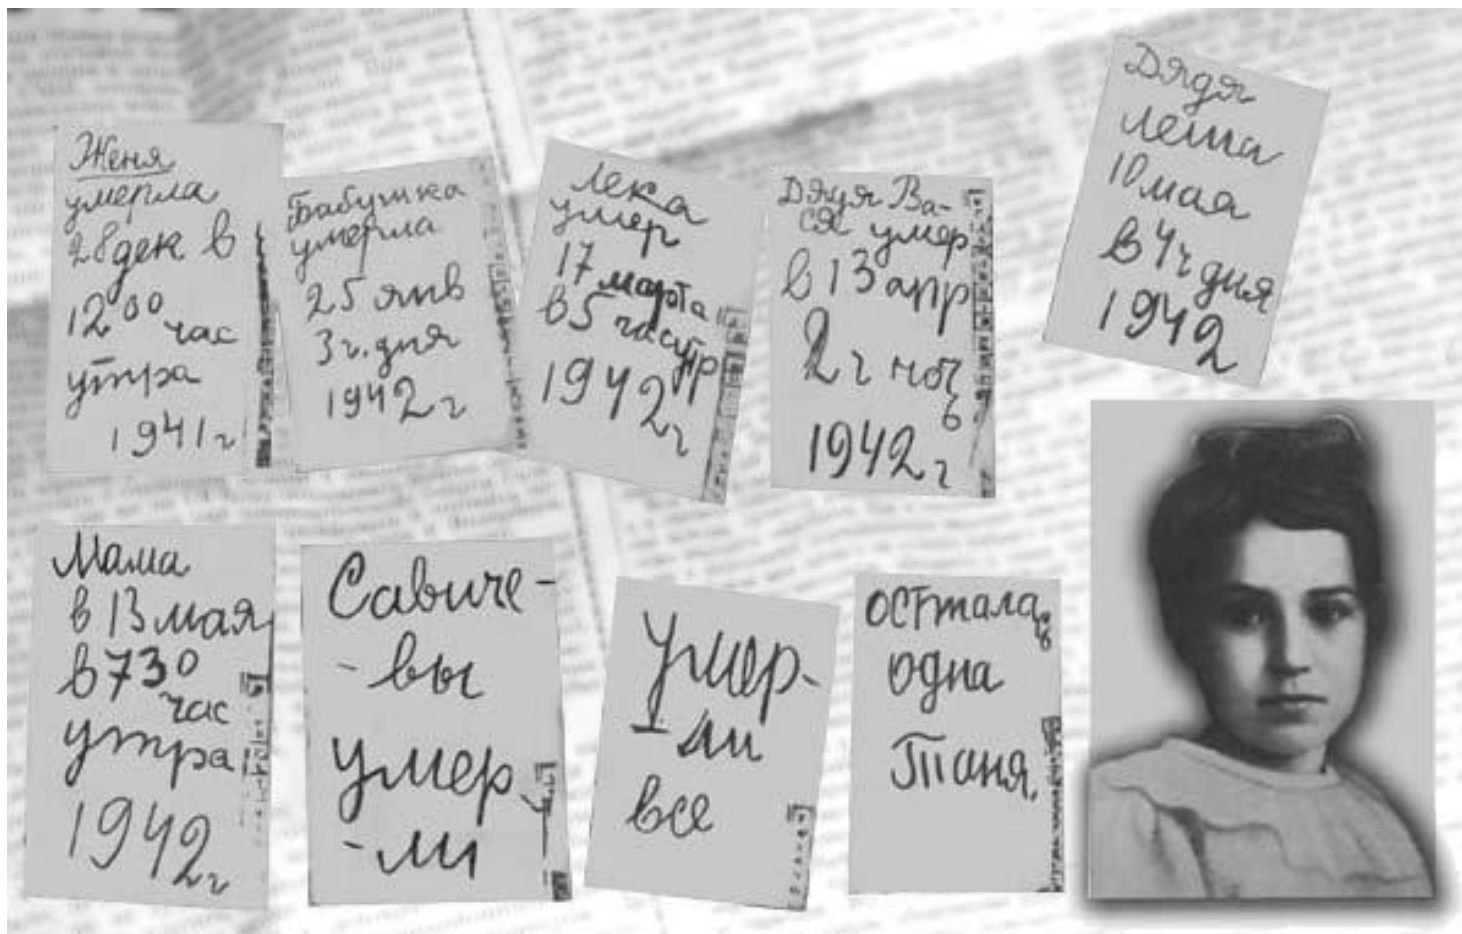 Женя
умерла
28 дек в
12 00 час
утра
1941 г
Бабушка
умерла
25 янв
3 ч. дня
1942 г
Лека
умер
17 марта
в 5 час утр
1942 г
Дядя Ва-
ся умер
в 13 апр
2 ч ночь
1942 г
Дядя
Леша
10 мая
в 4 ч дня
1942
Мама
в 13 мая
в 7 30
час
утра
1942 г
Савиче-
-вы
умер
-ли
Умер-
ли
все
осталась
одна
Таня.